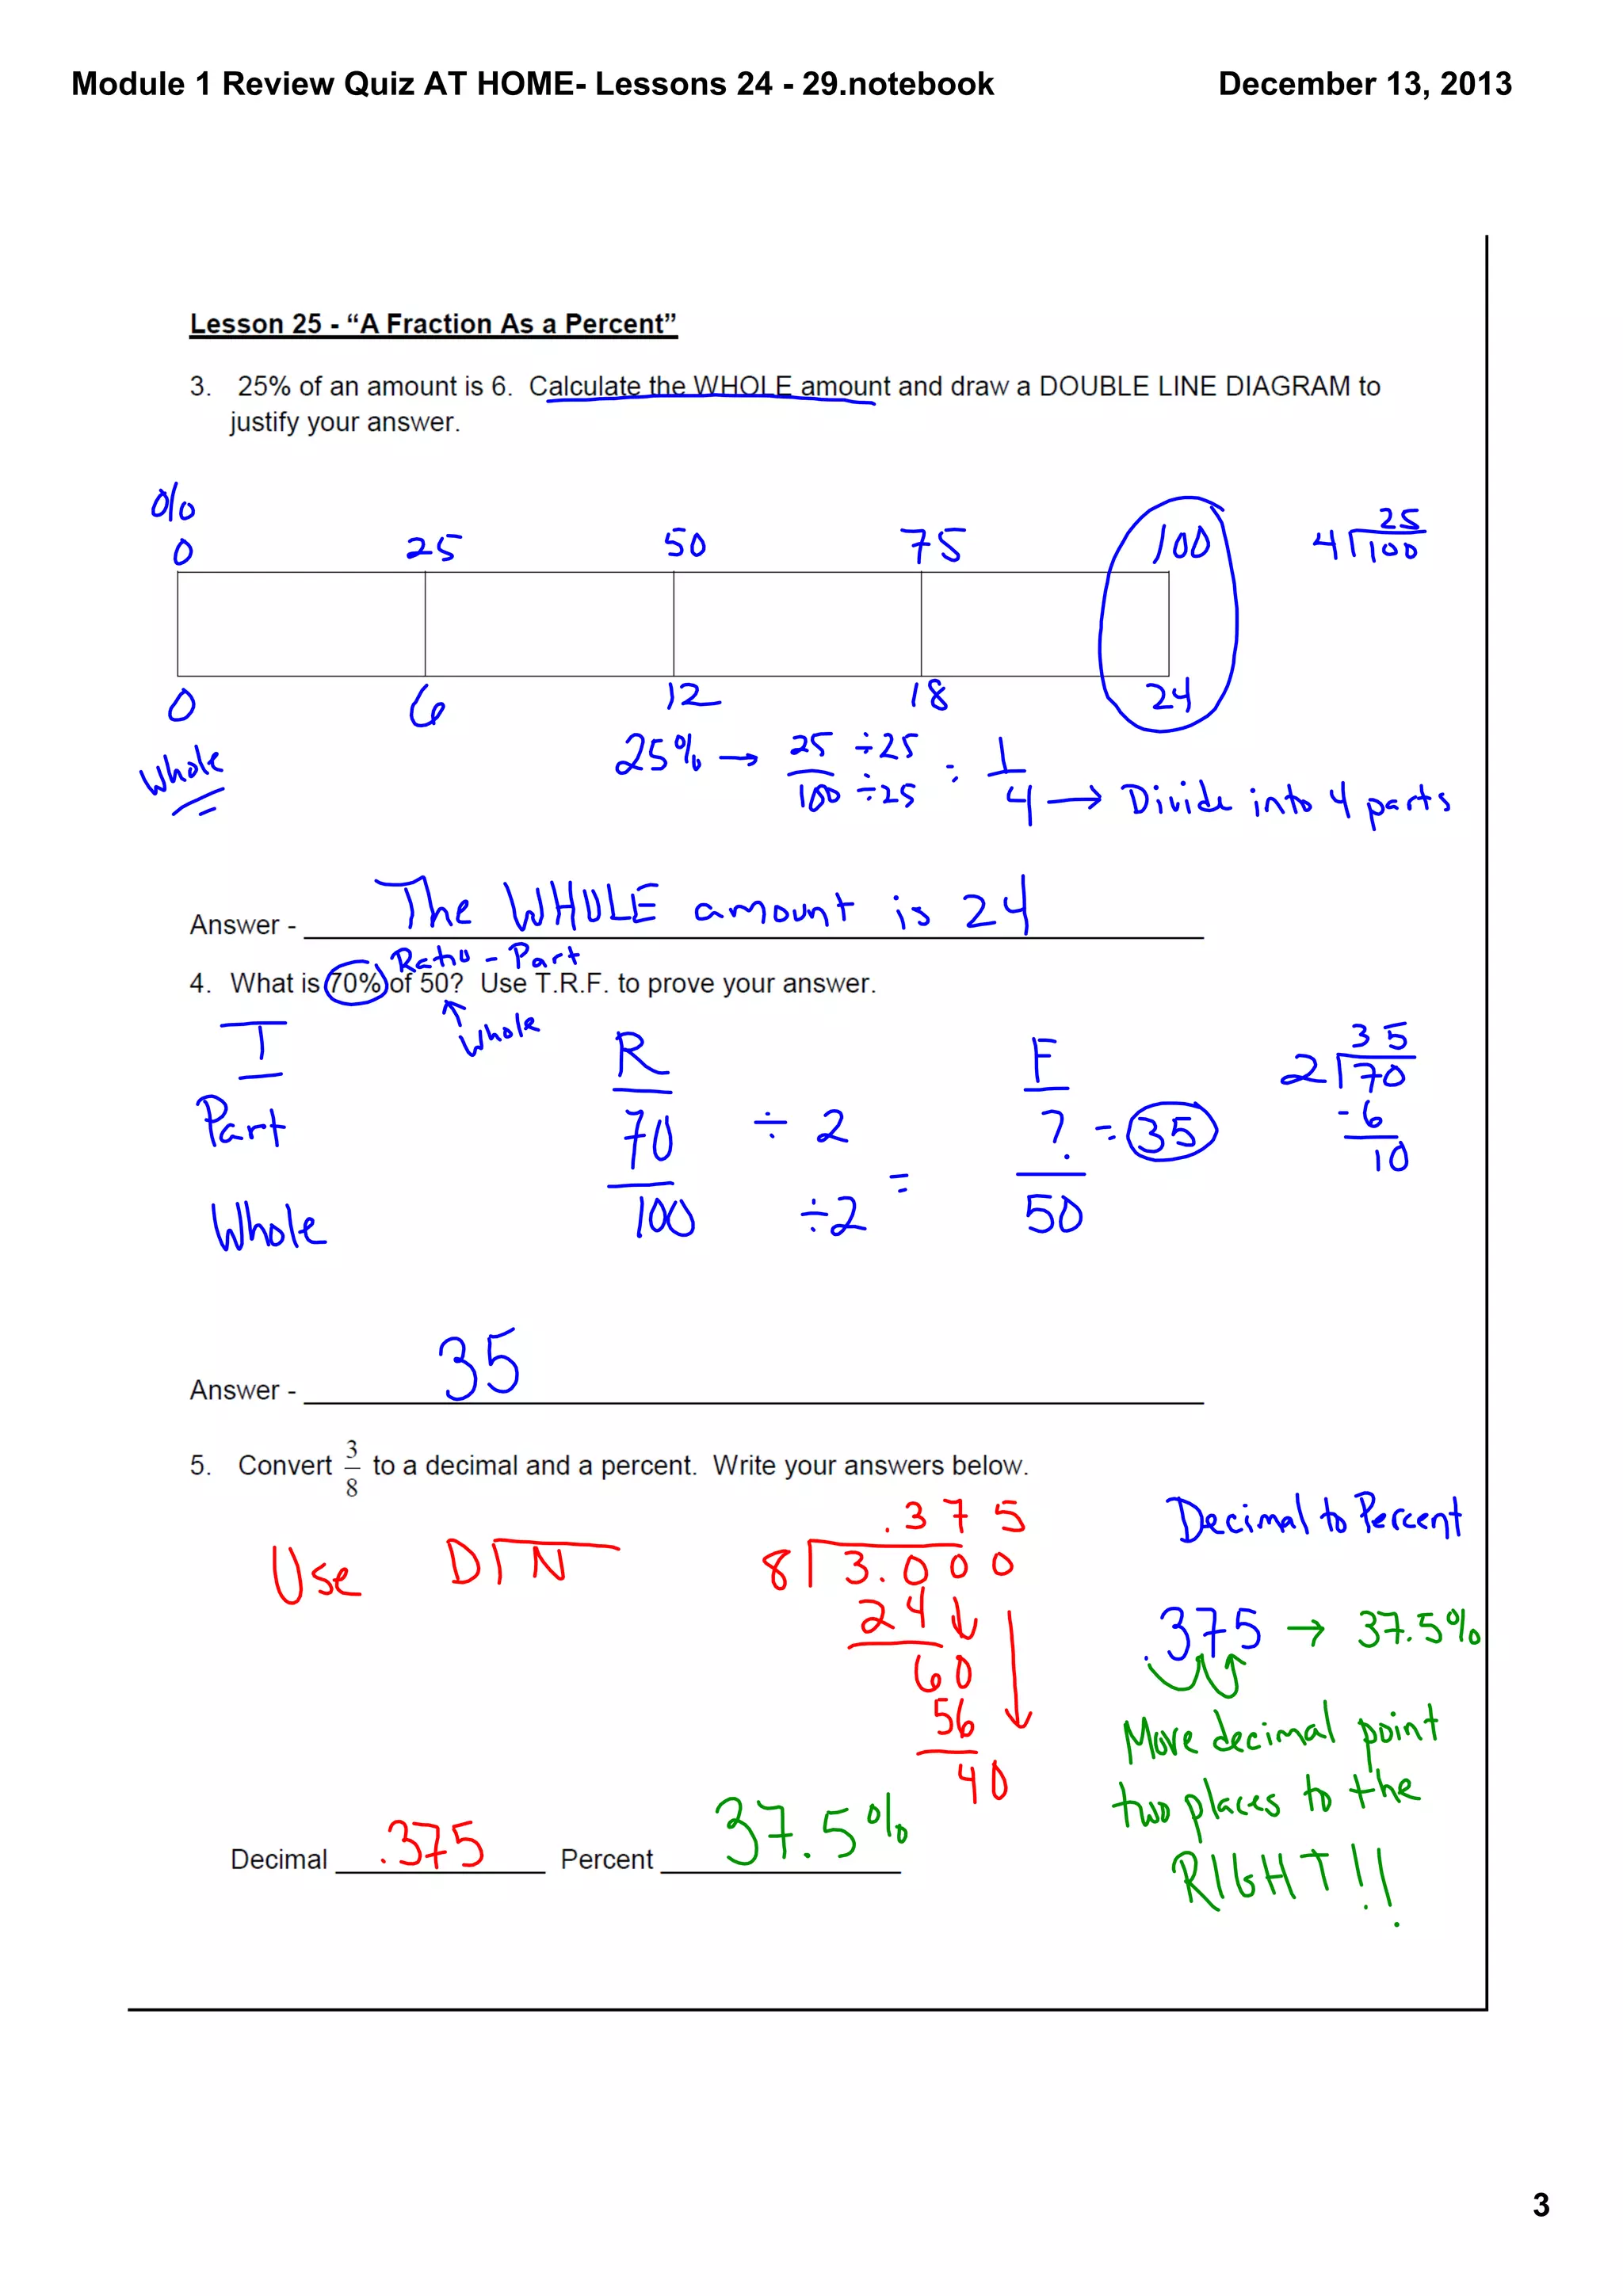 Module 1 Review Quiz AT HOME- Lessons 24 - 29.notebook December 13, 2013
Lesson 25 - “A Fraction As a Percent”
3. 25% of an amount is 6. Calculate the WHOLE amount and draw a DOUBLE LINE DIAGRAM to
justify your answer.
%
0 25 50 75 100
25
4 100
0 6 12 18 24
Whole
25% → 25 ÷25 = 1
100 ÷25 4 → Divide into 4 parts
Answer - The WHOLE amount is 24
Ratio - Part
4. What is 70% of 50? Use T.R.F. to prove your answer.
↑ Whole
T R F
35
2 70
- 6
10
Part 70 ÷ 2 = ? = 35
Whole 100 ÷2 50
Answer - 35
5. Convert 3/8 to a decimal and a percent. Write your answers below.
Use D N
.375
8 3.000
24
60
56
40
Decimal to Percent
.375 → 37.5%
Move decimal point
two places to the
RIGHT!!
Decimal .375 Percent 37.5%
3